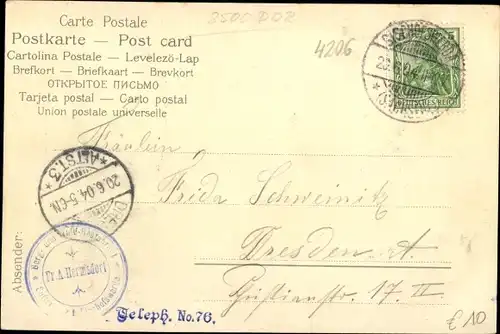 Carte Postale
Postkarte — Post card
Cartolina Postale — Levelező-Lap
Brefkort — Briefkaart — Brevkort
ОТКРЫТОЕ ПИСЬМО
Tarjeta postal — Carto postal
Union postale universelle
3500 D02
4206
20.6.04
DEUTSCHES REICH
Fräulein
Frida Schweinitz
Dresden
Christianstr. 17. II
* ALTST. 3 *
20.6.04. 5-6N.
Absender:
Fr. A. Hermsdorf
Teleph. No. 76.
£10